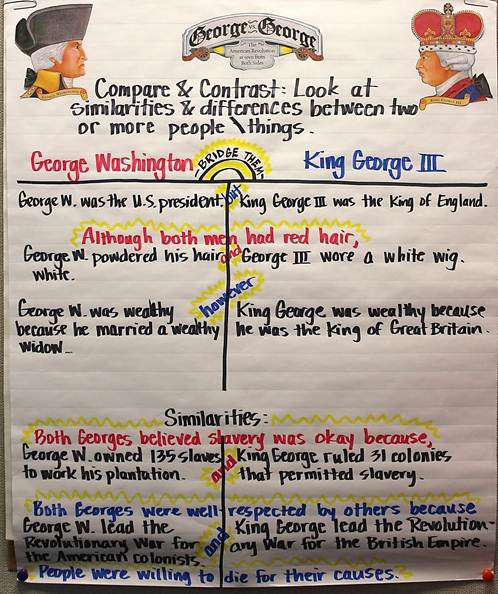 George vs. George
The
American Revolution
as seen from
Both Sides
George Washington
King George III
Compare & Contrast: Look at
similarities & differences between two
or more people\things.
George Washington BRIDGE THEM King George III
George W. was the U.S. president but King George III was the King of England.
Although both men had red hair,
George W. powdered his hair and George III wore a white wig.
white.
George W. was wealthy however King George was wealthy because
because he married a wealthy he was the King of Great Britain.
widow...
Similarities:
Both Georges believed slavery was okay because,
George W. owned 135 slaves and King George ruled 31 colonies
to work his plantation. that permitted slavery.
Both Georges were well-respected by others because
George W. lead the and King George lead the Revolution-
Revolutionary War for ary War for the British Empire.
the American colonists.
People were willing to die for their causes.